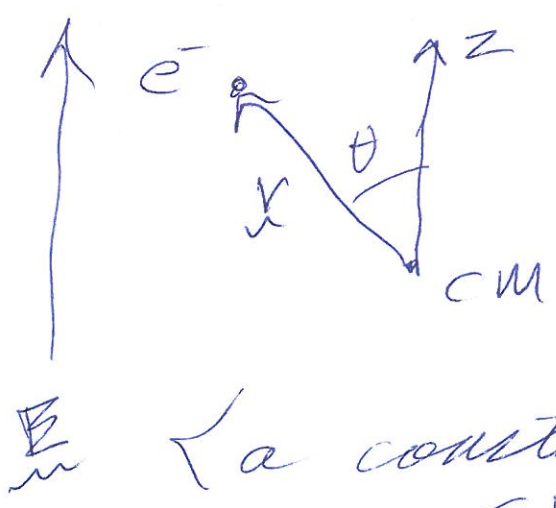 e⁻ z
θ
r
CM
E <a const